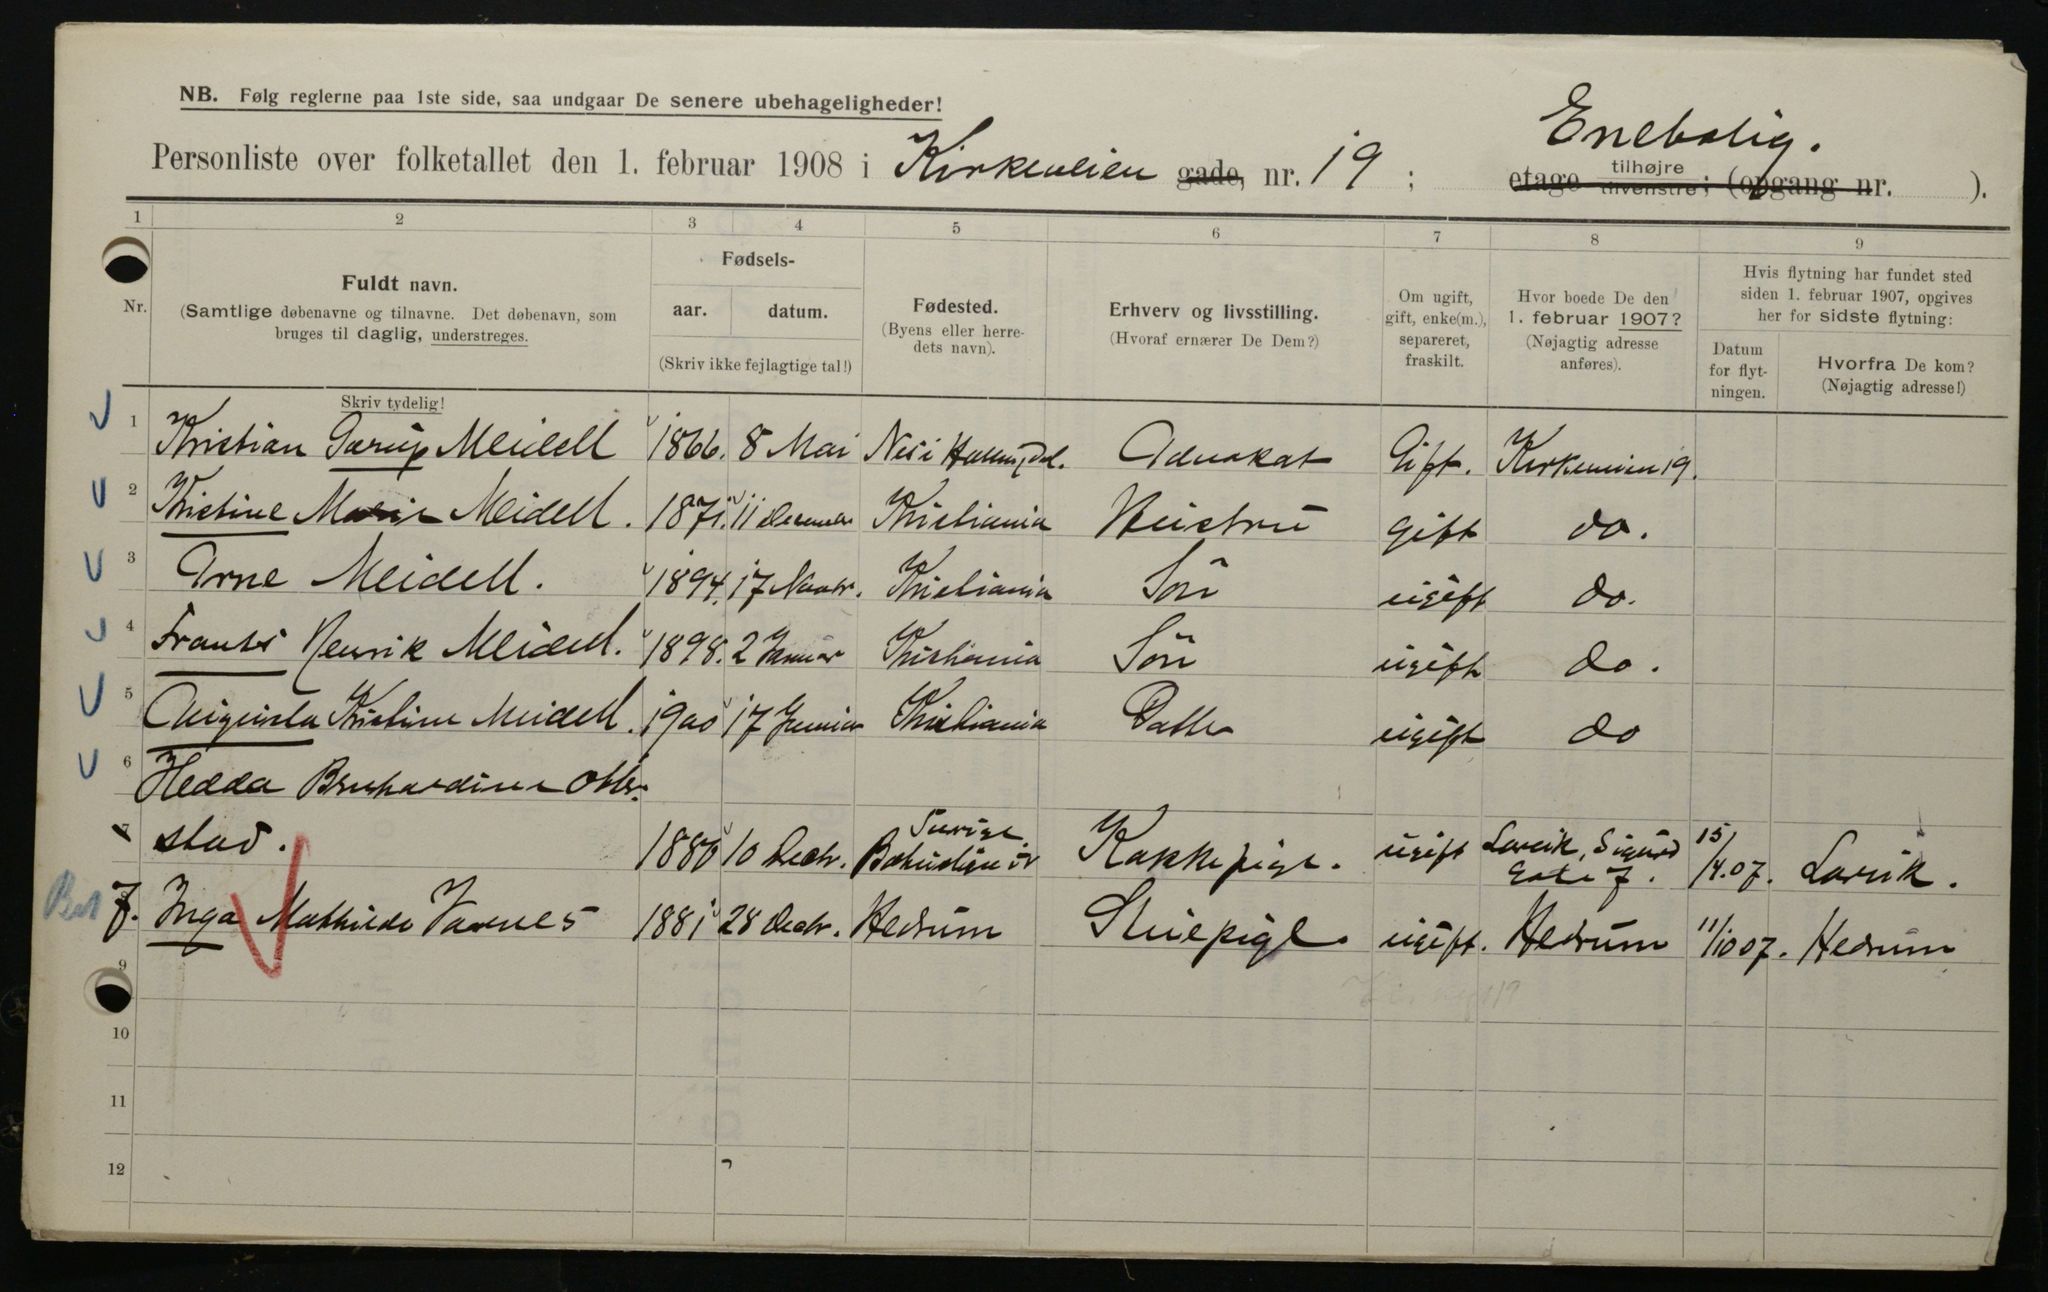 NB. Følg reglerne paa 1ste side, saa undgaar De senere ubehageligheder!
Enebolig.
Personliste over folketallet den 1. februar 1908 i Kirkeveien gade, nr. 19 ; etage tilhøjre tilvenstre; (opgang nr. ).
1 2 3 4 5 6 7 8 9
Nr.
Fuldt navn.
(Samtlige døbenavne og tilnavne. Det døbenavn, som
bruges til daglig, understreges.
Skriv tydelig!
Fødsels-
aar. datum.
(Skriv ikke fejlagtige tal!)
Fødested.
(Byens eller herre-
dets navn).
Erhverv og livsstilling.
(Hvoraf ernærer De Dem?)
Om ugift,
gift, enke(m.),
separeret,
fraskilt.
Hvor boede De den
1. februar 1907?
(Nøjagtig adresse
anføres).
Hvis flytning har fundet sted
siden 1. februar 1907, opgives
her for sidste flytning:
Datum
for flyt-
ningen.
Hvorfra De kom?
(Nøjagtig adresse!)
1 Kristian Garup Meidell 1866. 8 Mai Nes i Advokat Gift. Kirkeveien 19.
2 Kristine Marie Meidell. 1871. 11 December Kristiania Heistru gift do.
3 Arne Meidell. 1894. 17 Novbr. Kristiania Sön ugift do.
4 Frants Henrik Meidell. 1898. 2 Januar Kristiania Sön ugift do.
5 Augusta Kristine Meidell. 1900 17 Januar Kristiania Datter ugift do
6 Hedda Bernhardine Otter-
7 stad. 1880 10 Decbr. Sverige Kokkepige. ugift Larvik, Sigurds Gate 7. 15/4.07. Larvik.
7. Inga Mathilde Varnes 1881 28 Decbr. Hedrum Stuepige. ugift. Hedrum 11/10 07. Hedrum
9
10
11
12